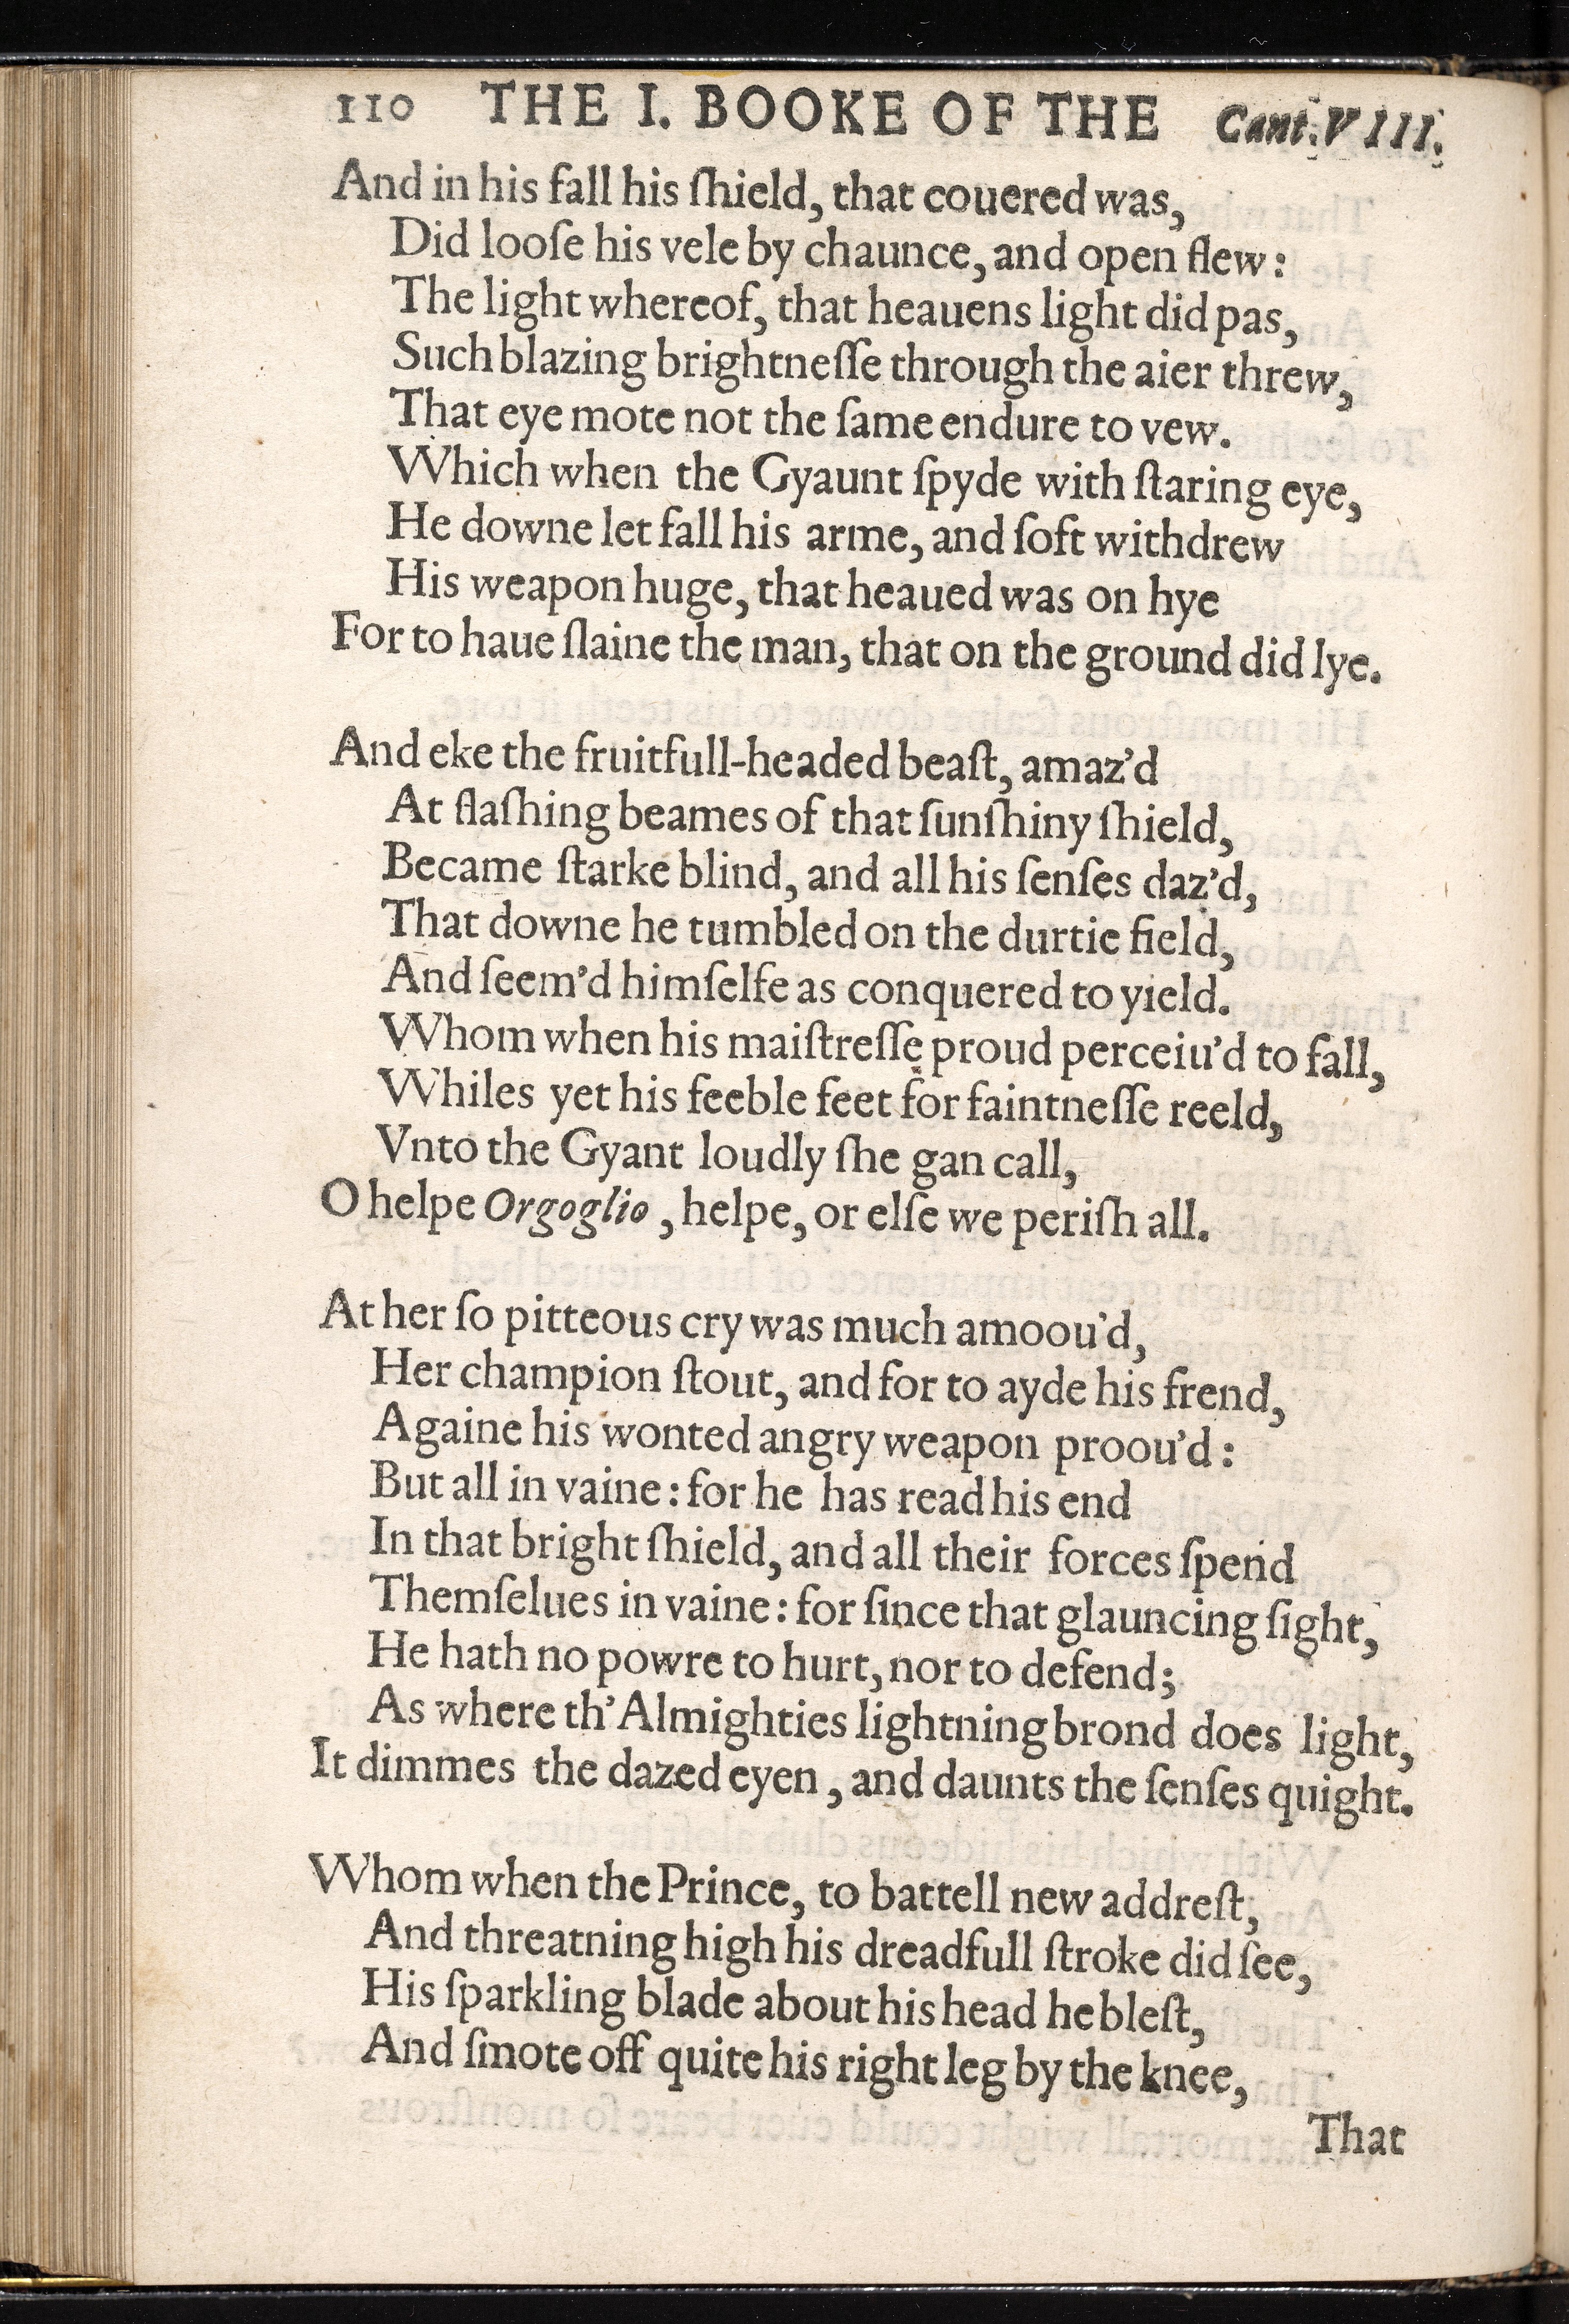 110 THE I. BOOKE OF THE Cant. VIII.
And in his fall his ſhield, that couered was,
Did looſe his vele by chaunce, and open flew:
The light whereof, that heauens light did pas,
Such blazing brightneſſe through the aier threw,
That eye mote not the ſame endure to vew.
Which when the Gyaunt ſpyde with ſtaring eye,
He downe let fall his arme, and ſoft withdrew
His weapon huge, that heaued was on hye
For to haue ſlaine the man, that on the ground did lye.
And eke the fruitfull-headed beaſt, amaz'd
At flaſhing beames of that ſunſhiny ſhield,
Became ſtarke blind, and all his ſenſes daz'd,
That downe he tumbled on the durtie field,
And ſeem'd himſelfe as conquered to yield.
Whom when his maiſtreſſe proud perceiu'd to fall,
Whiles yet his feeble feet for faintneſſe reeld,
Vnto the Gyant loudly ſhe gan call,
O helpe Orgoglio, helpe, or elſe we periſh all.
At her ſo pitteous cry was much amoou'd,
Her champion ſtout, and for to ayde his frend,
Againe his wonted angry weapon proou'd:
But all in vaine: for he has read his end
In that bright ſhield, and all their forces ſpend
Themſelues in vaine: for ſince that glauncing ſight,
He hath no powre to hurt, nor to defend;
As where th'Almighties lightning brond does light,
It dimmes the dazed eyen, and daunts the ſenſes quight.
Whom when the Prince, to battell new addreſt,
And threatning high his dreadfull ſtroke did ſee,
His ſparkling blade about his head he bleſt,
And ſmote off quite his right leg by the knee,
That